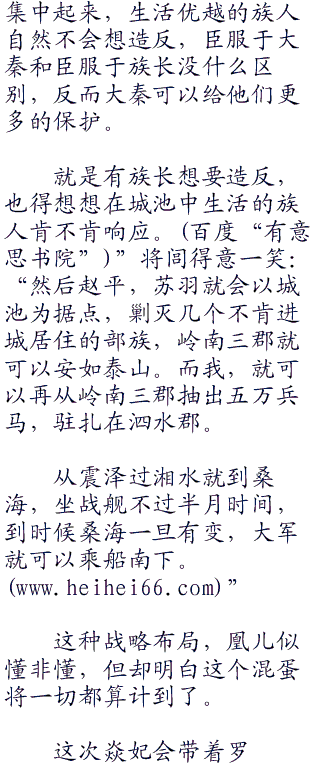 集中起来，生活优越的族人
自然不会想造反，臣服于大
秦和臣服于族长没什么区
别，反而大秦可以给他们更
多的保护。
就是有族长想要造反，
也得想想在城池中生活的族
人肯不肯响应。(百度“有意
思书院”)”将闾得意一笑：
“然后赵平，苏羽就会以城
池为据点，剿灭几个不肯进
城居住的部族，岭南三郡就
可以安如泰山。而我，就可
以再从岭南三郡抽出五万兵
马，驻扎在泗水郡。
从震泽过湘水就到桑
海，坐战舰不过半月时间，
到时候桑海一旦有变，大军
就可以乘船南下。
(www.heihei66.com)”
这种战略布局，凰儿似
懂非懂，但却明白这个混蛋
将一切都算计到了。
这次焱妃会带着罗